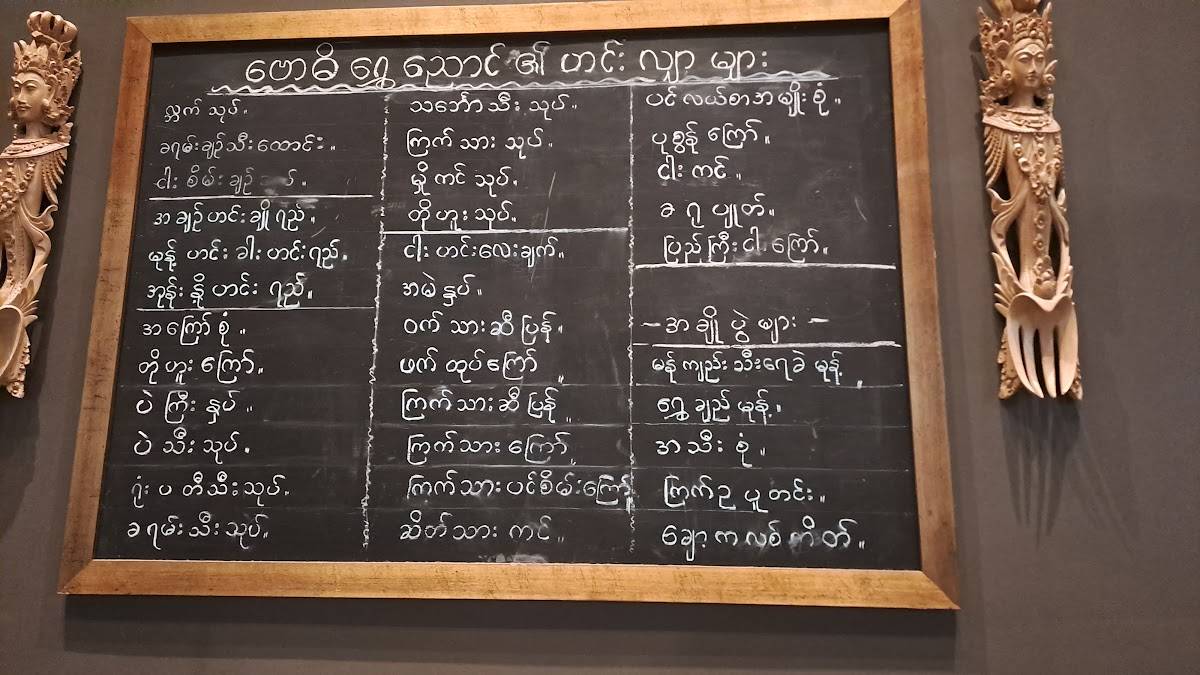 ဗောဓိ ရွှေ ညောင် ၏ ဟင်း လျာ များ
လ္ဘက် သုပ်.
ခရမ်းချဉ်သီးထောင်း ။
ငါး စိမ်း ချဉ်
အ ချဉ် ဟင်း ချို ရည် ။
မုန့် ဟင်း ခါး ဟင်းရည်.
အုန်း နို့ ဟင်း ရည် ။
အ ကြော် စုံ ။
တို ဟူး ကြော်.
ပဲ ကြီး နှပ် ။
ပဲ သီး သုပ်.
ရုံး ပ တီသီးသုပ်.
ခ ရမ်း သီး သုပ်.
သင်္ဘော သီး သုပ်.
ကြက် သား သုပ်.
မှို ကင် သုပ်.
တို ဟူး သုပ်.
ငါး ဟင်းလေးချက်.
အမဲ နှပ် ။
ဝက် သား ဆီ ပြန် ။
ဖက် ထုပ် ကြော် ။
ကြက် သား ဆီ ပြန် ။
ကြက် သား ကြော် ။
ကြက် သား ပင်စိမ်း ကြော် ။
ဆိတ် သား ကင် ။
ပင် လယ်စာ အ မျိုး စုံ ။
ပု စွန် ကြော် ။
ငါး ကင် ။
ခ ရု ပျုတ်.
ပြည် ကြီး ငါး ကြော်.
– အ ချို ပွဲ များ –
မန် ကျည်း သီး ရေ ခဲ မုန့် ။
ရွှေ ချည် မုန့် ။
အ သီး စုံ ။
ကြက် ဥ ပူ တင်း ။
ချော့ က လစ် ကိတ် ။